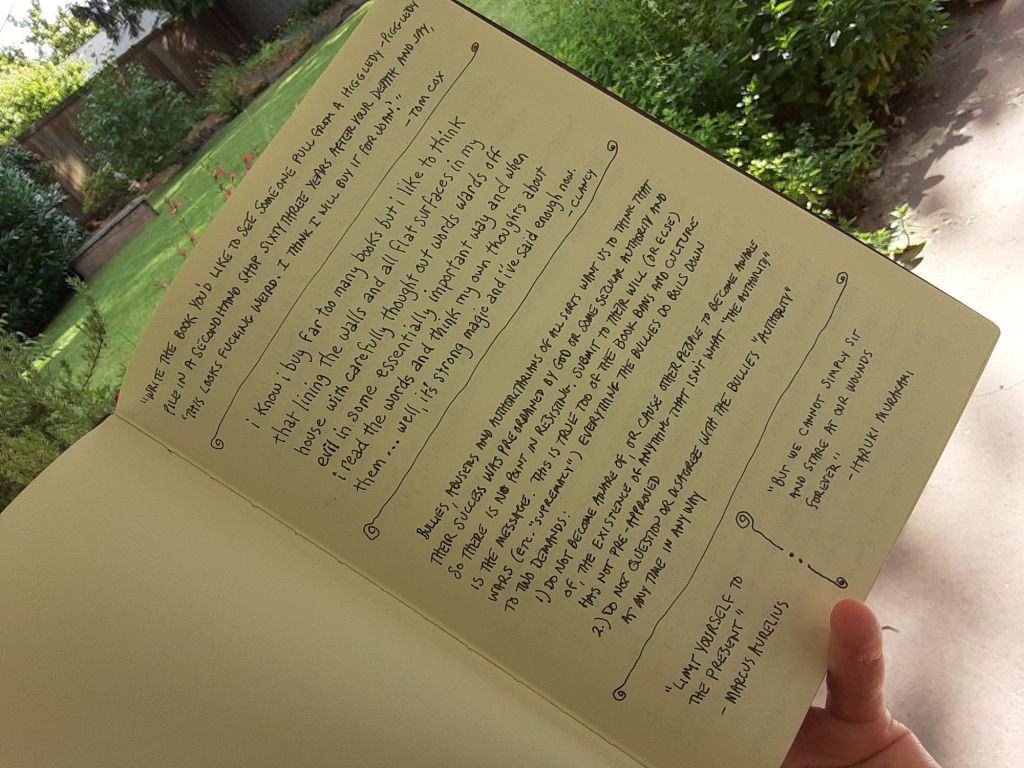 "WRITE THE BOOK YOU'D LIKE TO SEE SOMEONE PULL FROM A HIGGLEDY-PIGGLEDY
PILE IN A SECONDHAND SHOP - SIXTY THREE YEARS AFTER YOUR DEATH AND SAY,
'THIS LOOKS FUCKING WEIRD. I THINK I WILL BUY IT FOR WAN'."
- TOM COX
i know i buy far too many books but i like to think
that lining the walls and all flat surfaces in my
house with carefully thought out words wards off
evil in some essentially important way and when
i read the words and think my own thoughts about
them... well, it's strong magic and i've said enough now.
- CLANCY
BULLIES, ABUSERS AND AUTHORITARIANS OF ALL SORTS WANT US TO THINK THAT
THEIR SUCCESS WAS PRE-ORDAINED BY GOD OR SOME SECULAR AUTHORITY AND
SO THERE IS NO POINT IN RESISTING. SUBMIT TO THEIR WILL (OR ELSE)
IS THE MESSAGE. THIS IS TRUE TOO OF THE BOOK BANS AND CULTURE
WARS (ETC. "SUPREMACY") EVERYTHING THE BULLIES DO BOILS DOWN
TO TWO DEMANDS:
1) DO NOT BECOME AWARE OF, OR CAUSE OTHER PEOPLE TO BECOME AWARE
OF, THE EXISTENCE OF ANYTHING THAT ISN'T WHAT "THE AUTHORITY"
HAS NOT PRE-APPROVED
2) DO NOT QUESTION OR DISAGREE WITH THE BULLIES "AUTHORITY"
AT ANY TIME IN ANY WAY
"LIMIT YOURSELF TO
THE PRESENT"
- MARCUS AURELIUS
"BUT WE CANNOT SIMPLY SIT
AND STARE AT OUR WOUNDS
FOREVER"
- HARUKI MURAKAMI